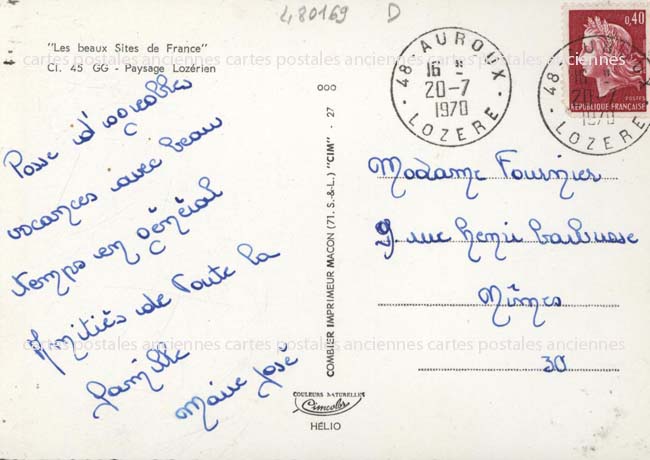 480169 D
"Les beaux Sites de France"
Cl. 45 GG - Paysage Lozérien
Passe d'agréables
vacances avec beau
temps en général
Amitiés de toute la
famille
Marie José
COMBIER IMPRIMEUR MACON (71. S.-&-L.) "CIM" - 27
000
COULEURS NATURELLES
Cimcolor
HÉLIO
48 - AUROUX
16 H
20-7
1970
LOZERE
48 - AUROUX
20-7
1970
LOZERE
0,40
POSTES
REPUBLIQUE FRANÇAISE
Madame Fournier
9 rue henri barbusse
Nîmes
30
cartes postales anciennes cartes postales anciennes cartes postales anciennes
cartes postales anciennes cartes postales anciennes cartes postales anciennes